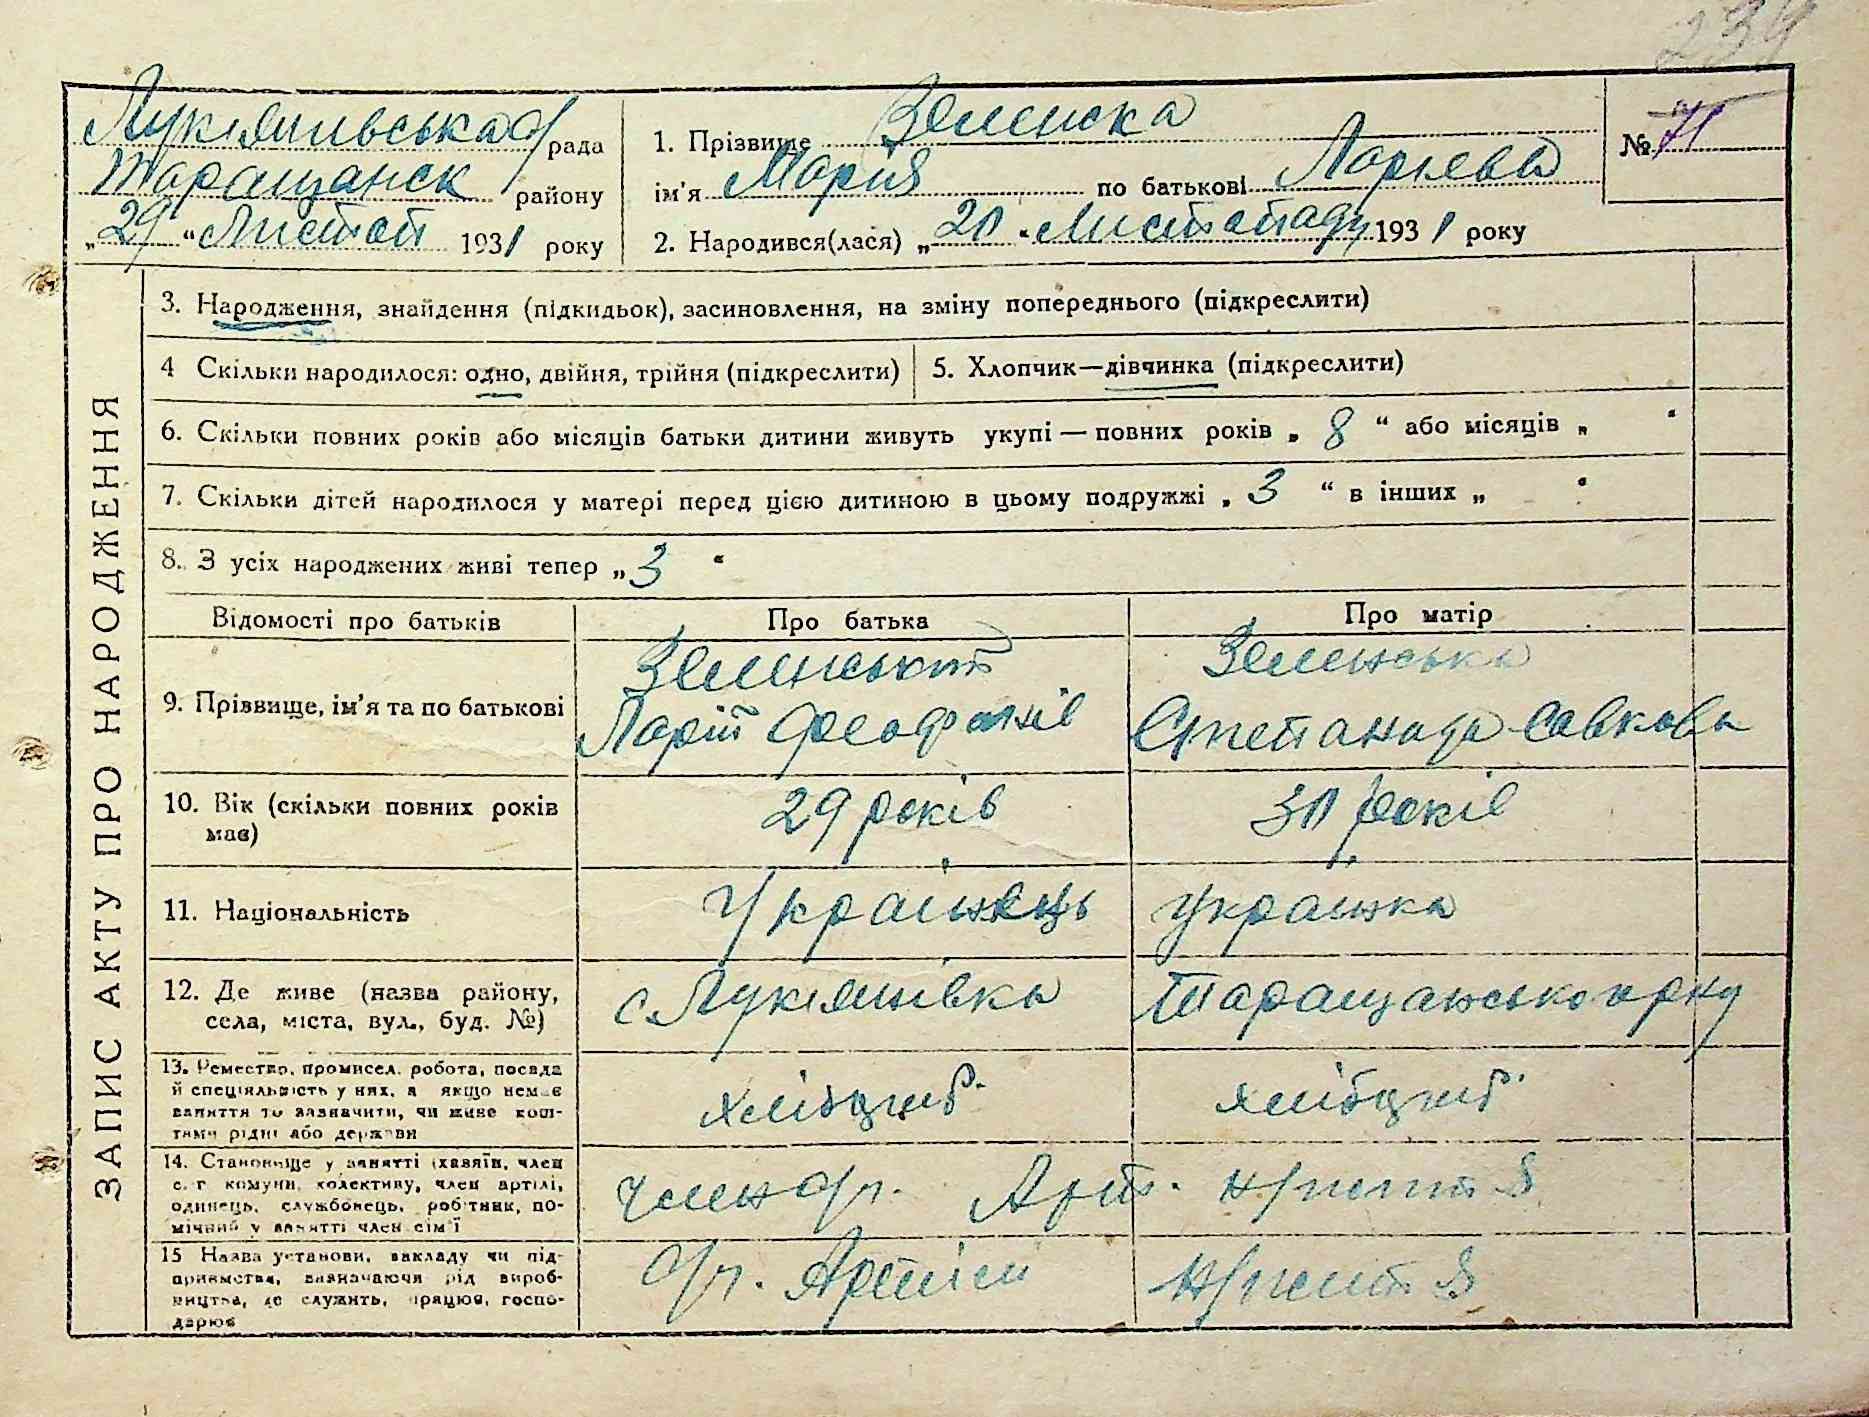 239
Лукіянівська с/рада
Таращанск району
„29“ Листоп 1931 року
1. Прізвище Зеленска
ім'я Марія по батькові Ларієва
2. Народився(лася) „20“ Листопаду 1931 року
№ 71
ЗАПИС АКТУ ПРО НАРОДЖЕННЯ
3. Народження, знайдення (підкидьок), засиновлення, на зміну попереднього (підкреслити)
4 Скільки народилося: одно, двійня, трійня (підкреслити)
5. Хлопчик—дівчинка (підкреслити)
6. Скільки повних років або місяців батьки дитини живуть укупі — повних років „ 8 “ або місяців „ “
7. Скільки дітей народилося у матері перед цією дитиною в цьому подружжі „ 3 “ в інших „ “
8. З усіх народжених живі тепер „ 3 “
Відомості про батьків Про батька Про матір
9. Прізвище, ім'я та по батькові
Зеленський
Ларій Феофанів
Зеленська
Степанида Савкова
10. Вік (скільки повних років має)
29 років
30 років
11. Національність
Українець
Українка
12. Де живе (назва району, села, міста, вул., буд. №)
с. Лукіянівка
Таращанського р-ну
13. Ремество, промисел, робота, посада
й спеціяльність у них, а якщо немає
заняття то зазначити, чи живе кош-
тами рідні або держави
хлібороб
хлібороб
14. Становище у занятті (хазяїн, член
с. г. комуни, колективу, член артілі,
одинець, службовець, робітник, по-
мічний у занятті член сім'ї
член с/г. Арт.
15 Назва установи, закладу чи під-
приємства, зазначаючи рід вироб-
ництва, де служить, працює, госпо-
дарює
с/г. Артіли